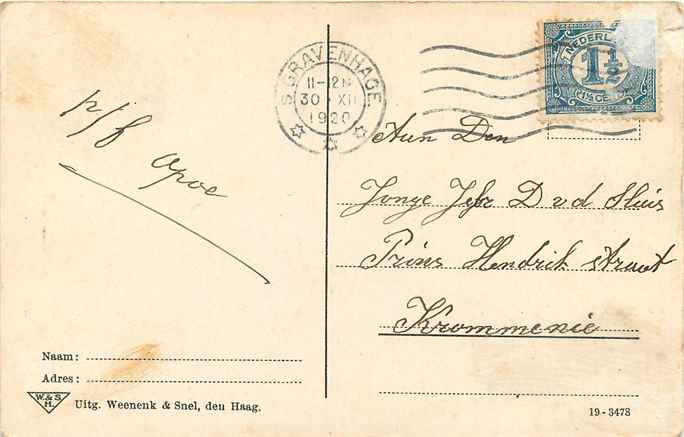 'S GRAVENHAGE
11-12N
30·XII
1920
NEDERL
1½
CENT
p/f Opoe
Aan Den
Jonge Jefr D v d Sluis
Prins Hendrik straat
Krommenie
Naam:
Adres:
W.&S.
H.
Uitg. Weenenk & Snel, den Haag.
19-3478